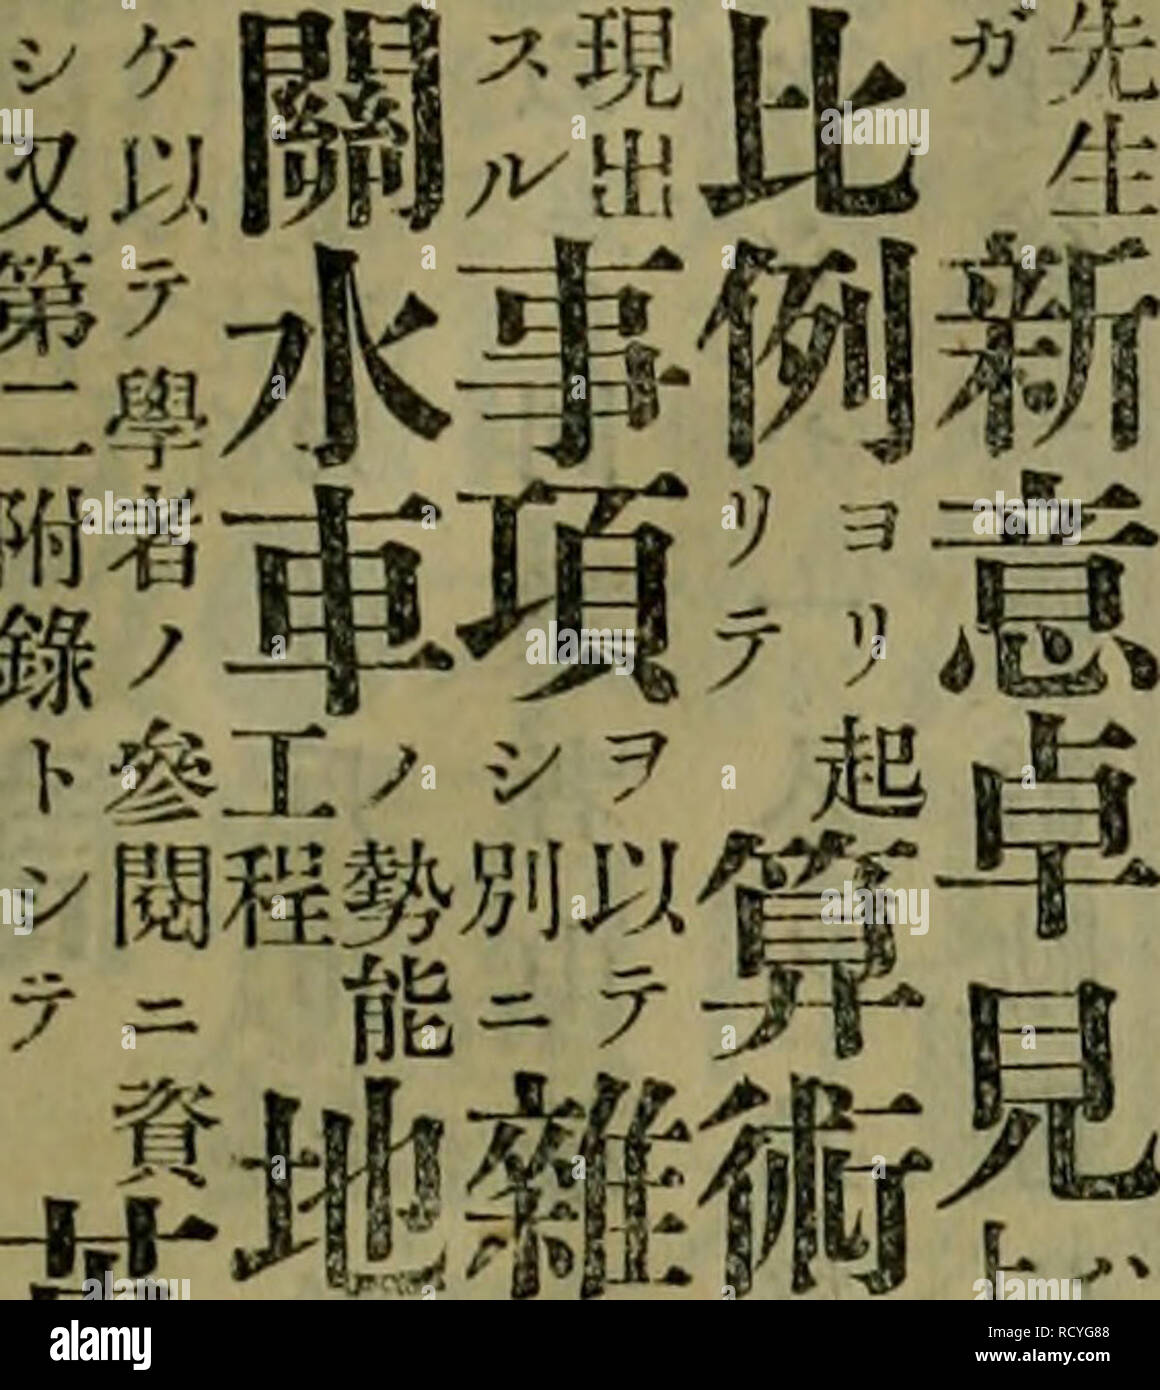 先生
ガ
新意卓見
ハ
ト
比例
ヨリ起
リテ
算術
現出
スル
事項
ヲ以テ
シ別ニ
雜
關水車
ノ勢能
工程
地
ケ以テ學者ノ參閱ニ資
シ又第二附錄トシテ
alamy
Image ID: RCYG88
www.alamy.com